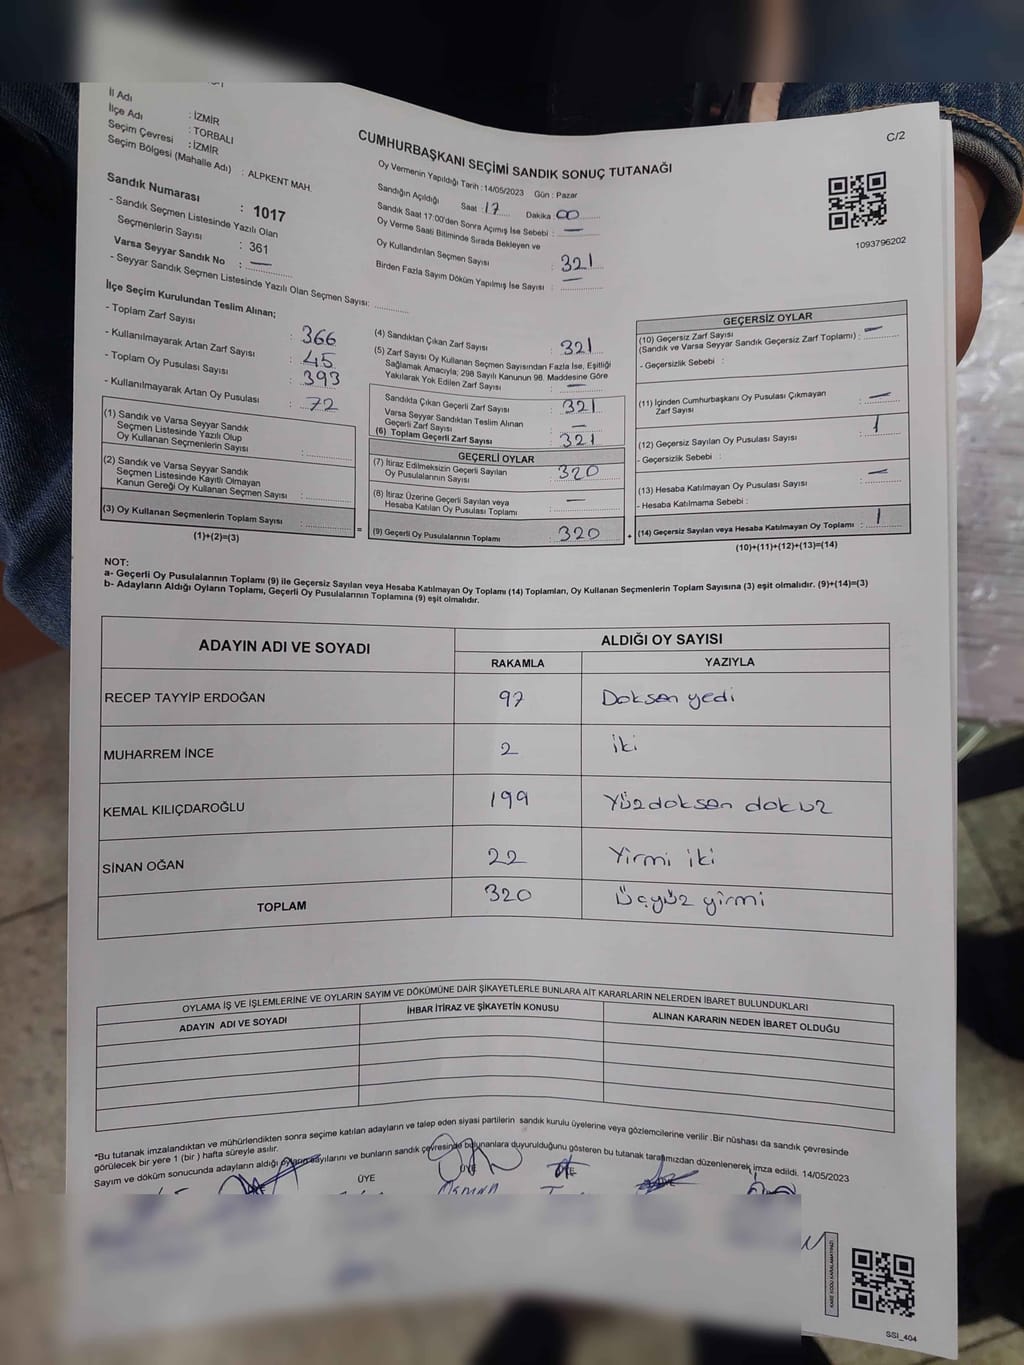 C/2
İl Adı : İZMİR
İlçe Adı : TORBALI
Seçim Çevresi : İZMİR
Seçim Bölgesi (Mahalle Adı) : ALPKENT MAH.
Sandık Numarası : 1017
- Sandık Seçmen Listesinde Yazılı Olan
Seçmenlerin Sayısı : 361
Varsa Seyyar Sandık No : —
- Seyyar Sandık Seçmen Listesinde Yazılı Olan Seçmen Sayısı:
CUMHURBAŞKANI SEÇİMİ SANDIK SONUÇ TUTANAĞI
Oy Vermenin Yapıldığı Tarih : 14/05/2023 Gün : Pazar
Sandığın Açıldığı Saat : 17 Dakika : 00
Sandık Saat 17:00'den Sonra Açılmış İse Sebebi : —
Oy Verme Saati Bitiminde Sırada Bekleyen ve
Oy Kullandırılan Seçmen Sayısı : 321
Birden Fazla Sayım Döküm Yapılmış İse Sayısı : —
1093796202
İlçe Seçim Kurulundan Teslim Alınan;
- Toplam Zarf Sayısı : 366
- Kullanılmayarak Artan Zarf Sayısı : 45
- Toplam Oy Pusulası Sayısı : 393
- Kullanılmayarak Artan Oy Pusulası : 72
(1) Sandık ve Varsa Seyyar Sandık
Seçmen Listesinde Yazılı Olup
Oy Kullanan Seçmenlerin Sayısı :
(2) Sandık ve Varsa Seyyar Sandık
Seçmen Listesinde Kayıtlı Olmayan
Kanun Gereği Oy Kullanan Seçmen Sayısı :
(3) Oy Kullanan Seçmenlerin Toplam Sayısı :
(1)+(2)=(3)
=
(4) Sandıktan Çıkan Zarf Sayısı : 321
(5) Zarf Sayısı Oy Kullanan Seçmen Sayısından Fazla İse, Eşitliği
Sağlamak Amacıyla; 298 Sayılı Kanunun 98. Maddesine Göre
Yakılarak Yok Edilen Zarf Sayısı : —
Sandıkta Çıkan Geçerli Zarf Sayısı : 321
Varsa Seyyar Sandıktan Teslim Alınan
Geçerli Zarf Sayısı : —
(6) Toplam Geçerli Zarf Sayısı : 321
GEÇERLİ OYLAR
(7) İtiraz Edilmeksizin Geçerli Sayılan
Oy Pusulasının Sayısı : 320
(8) İtiraz Üzerine Geçerli Sayılan veya
Hesaba Katılan Oy Pusulası Toplamı : —
(9) Geçerli Oy Pusulalarının Toplamı : 320
+
GEÇERSİZ OYLAR
(10) Geçersiz Zarf Sayısı
(Sandık ve Varsa Seyyar Sandık Geçersiz Zarf Toplamı) : —
- Geçersizlik Sebebi :
(11) İçinden Cumhurbaşkanı Oy Pusulası Çıkmayan
Zarf Sayısı : —
(12) Geçersiz Sayılan Oy Pusulası Sayısı : 1
- Geçersizlik Sebebi :
(13) Hesaba Katılmayan Oy Pusulası Sayısı : —
- Hesaba Katılmama Sebebi :
(14) Geçersiz Sayılan veya Hesaba Katılmayan Oy Toplamı : 1
(10)+(11)+(12)+(13)=(14)
NOT:
a- Geçerli Oy Pusulalarının Toplamı (9) ile Geçersiz Sayılan veya Hesaba Katılmayan Oy Toplamı (14) Toplamları, Oy Kullanan Seçmenlerin Toplam Sayısına (3) eşit olmalıdır. (9)+(14)=(3)
b- Adayların Aldığı Oyların Toplamı, Geçerli Oy Pusulalarının Toplamına (9) eşit olmalıdır.
ADAYIN ADI VE SOYADI ALDIĞI OY SAYISI
RAKAMLA YAZIYLA
RECEP TAYYİP ERDOĞAN 97 Doksan yedi
MUHARREM İNCE 2 iki
KEMAL KILIÇDAROĞLU 199 Yüzdoksan dokuz
SİNAN OĞAN 22 Yirmi iki
TOPLAM 320 Üçyüz yirmi
OYLAMA İŞ VE İŞLEMLERİNE VE OYLARIN SAYIM VE DÖKÜMÜNE DAİR ŞİKAYETLERLE BUNLARA AİT KARARLARIN NELERDEN İBARET BULUNDUKLARI
ADAYIN ADI VE SOYADI İHBAR İTİRAZ VE ŞİKAYETİN KONUSU ALINAN KARARIN NEDEN İBARET OLDUĞU
*Bu tutanak imzalandıktan ve mühürlendikten sonra seçime katılan adayların ve talep eden siyasi partilerin sandık kurulu üyelerine veya gözlemcilerine verilir .Bir nüshası da sandık çevresinde
görülecek bir yere 1 (bir ) hafta süreyle asılır.
Sayım ve döküm sonucunda adayların aldığı oyların sayılarını ve bunların sandık çevresinde bulunanlara duyurulduğunu gösteren bu tutanak tarafımızdan düzenlenerek imza edildi. 14/05/2023
ÜYE ÜYE
SSİ_404